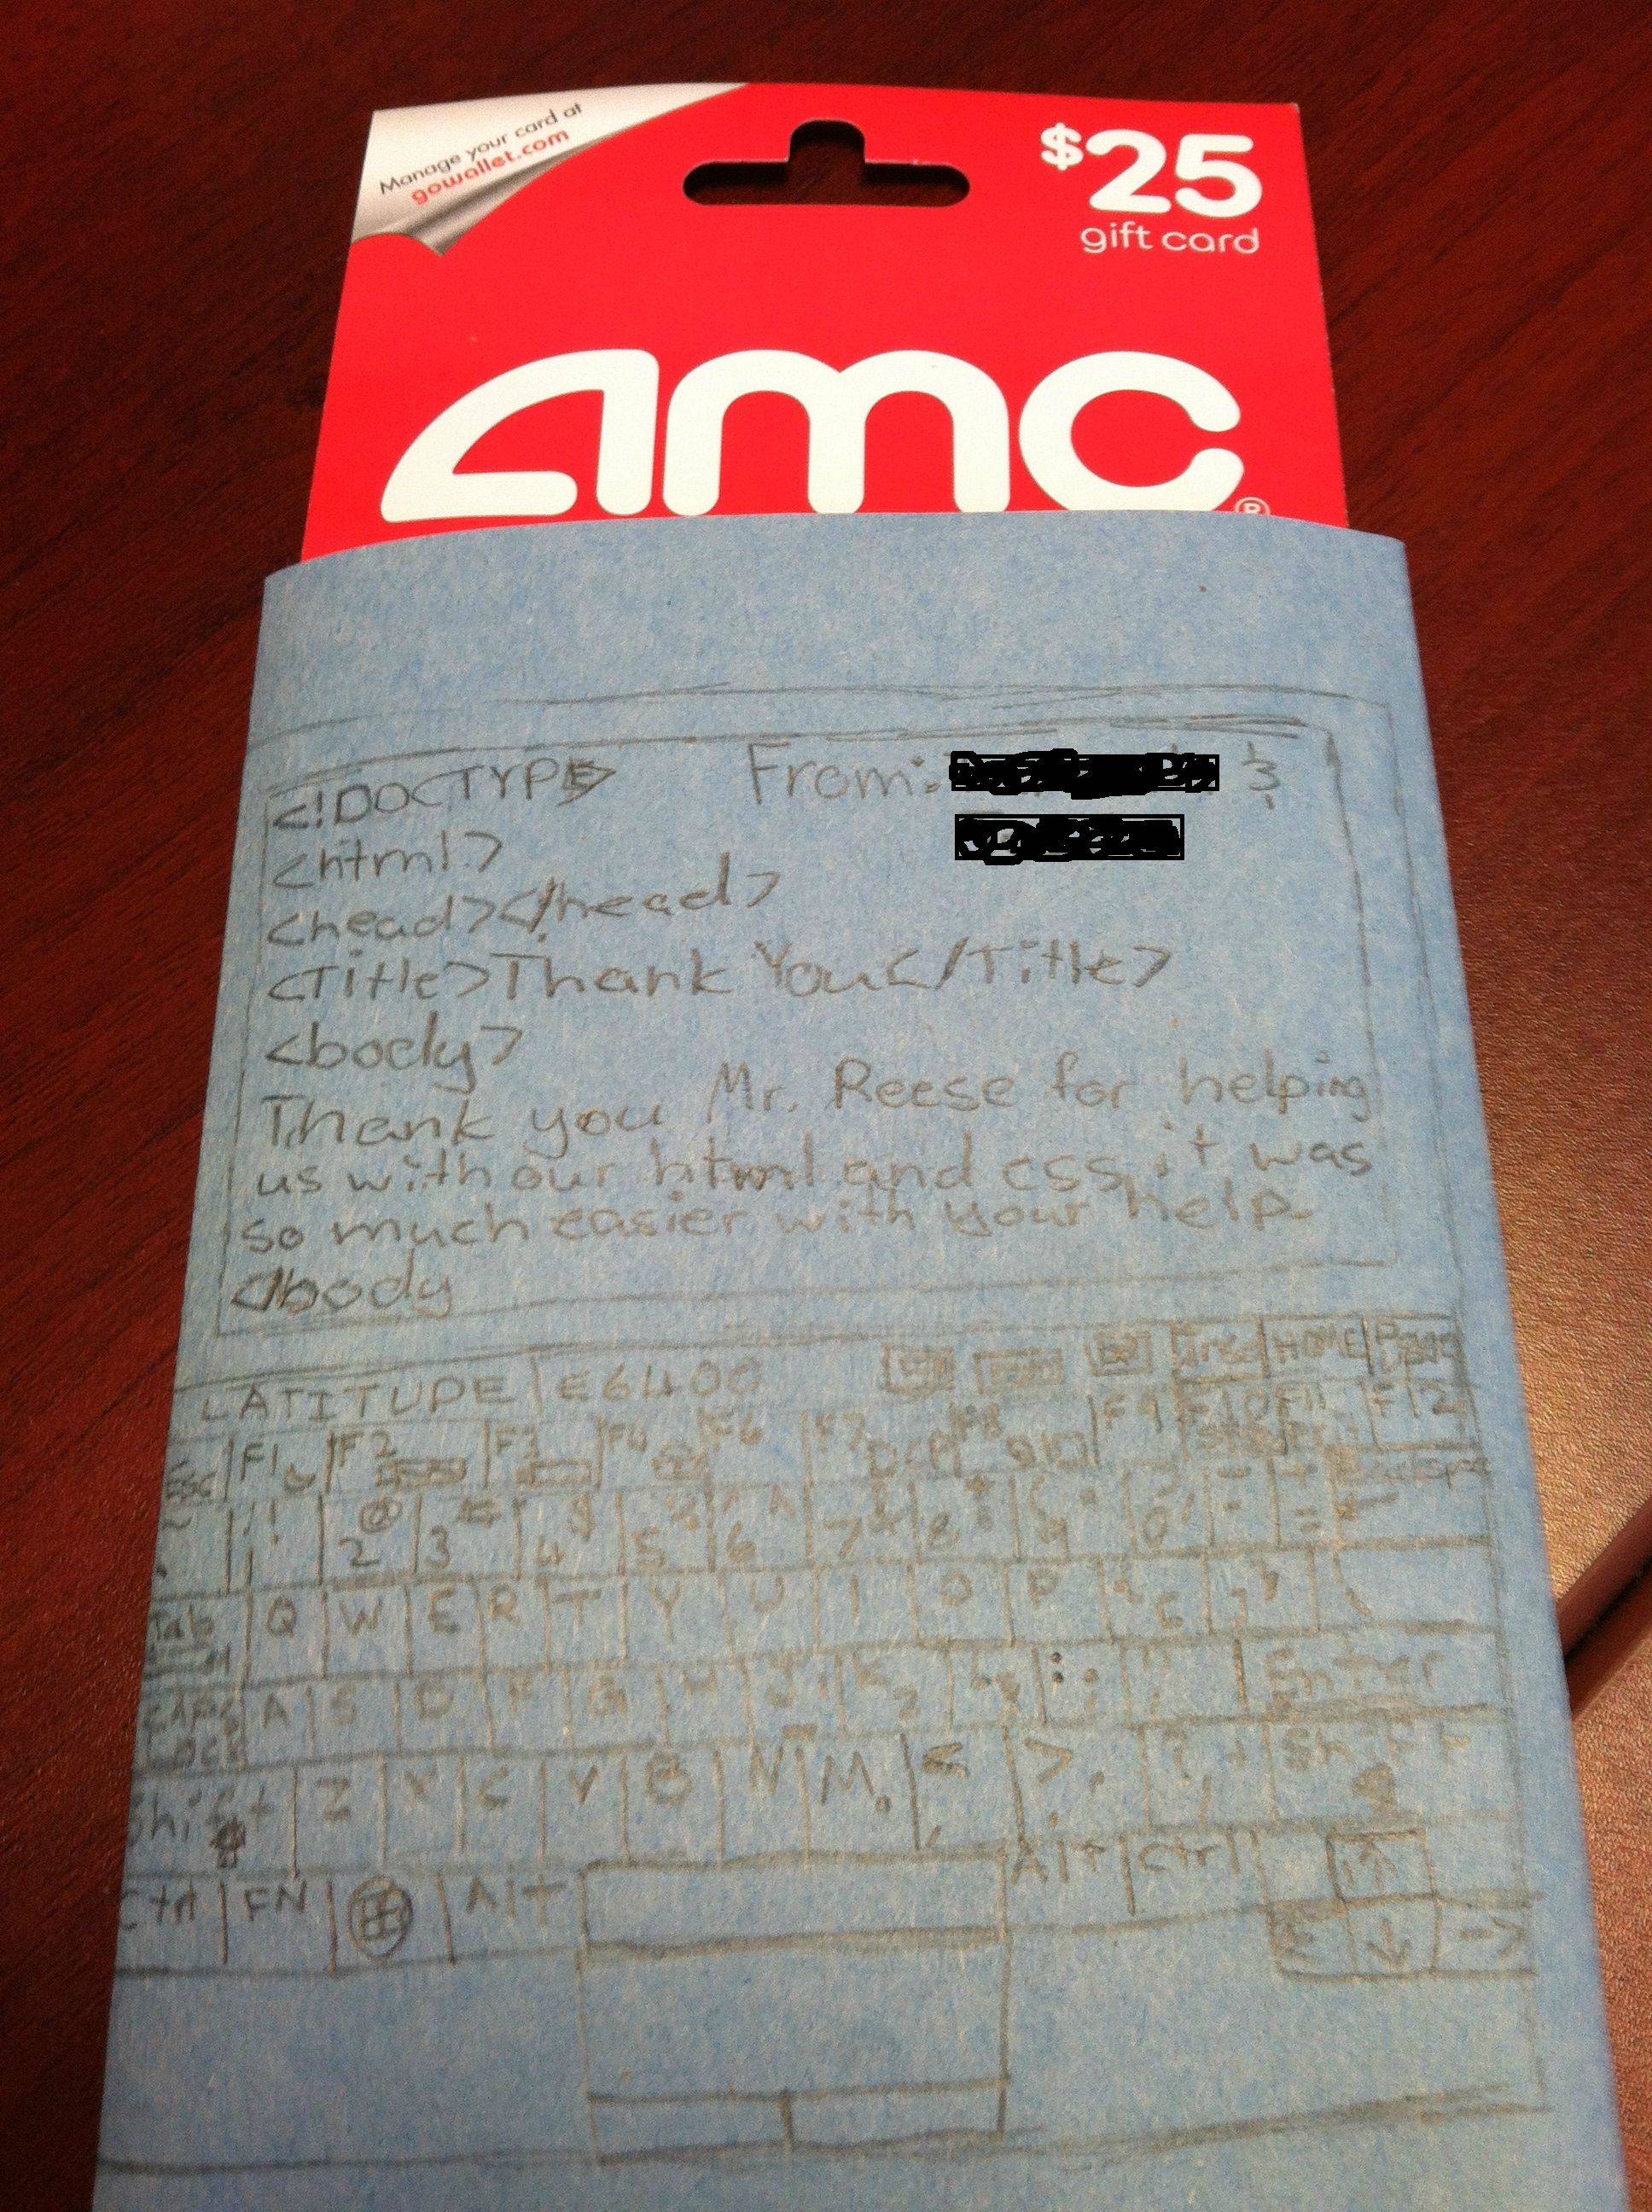 Manage your card at
gowallet.com
$25
gift card
amc®
<!DOCTYPE> From: &
<html>
<head></head>
<Title>Thank You</Title>
<body>
Thank you Mr. Reese for helping
us with our html and css, it was
so much easier with your help.
</body
LATITUDE | E6400 HOME
ESC F1 F2 F3 F4 F6 F7 F8 F9 F10 F11 F12
! @ 2 3 $ 4 5 ^ 6 & 7 * 8 ( 9 ) 0 - + =
Tab Q W E R T Y U I O P
CAPS LOCK A S D F G Enter
Shift Z X C V B N M < > ? Shift
Ctrl FN Alt Alt Ctrl ↑
← ↓ →